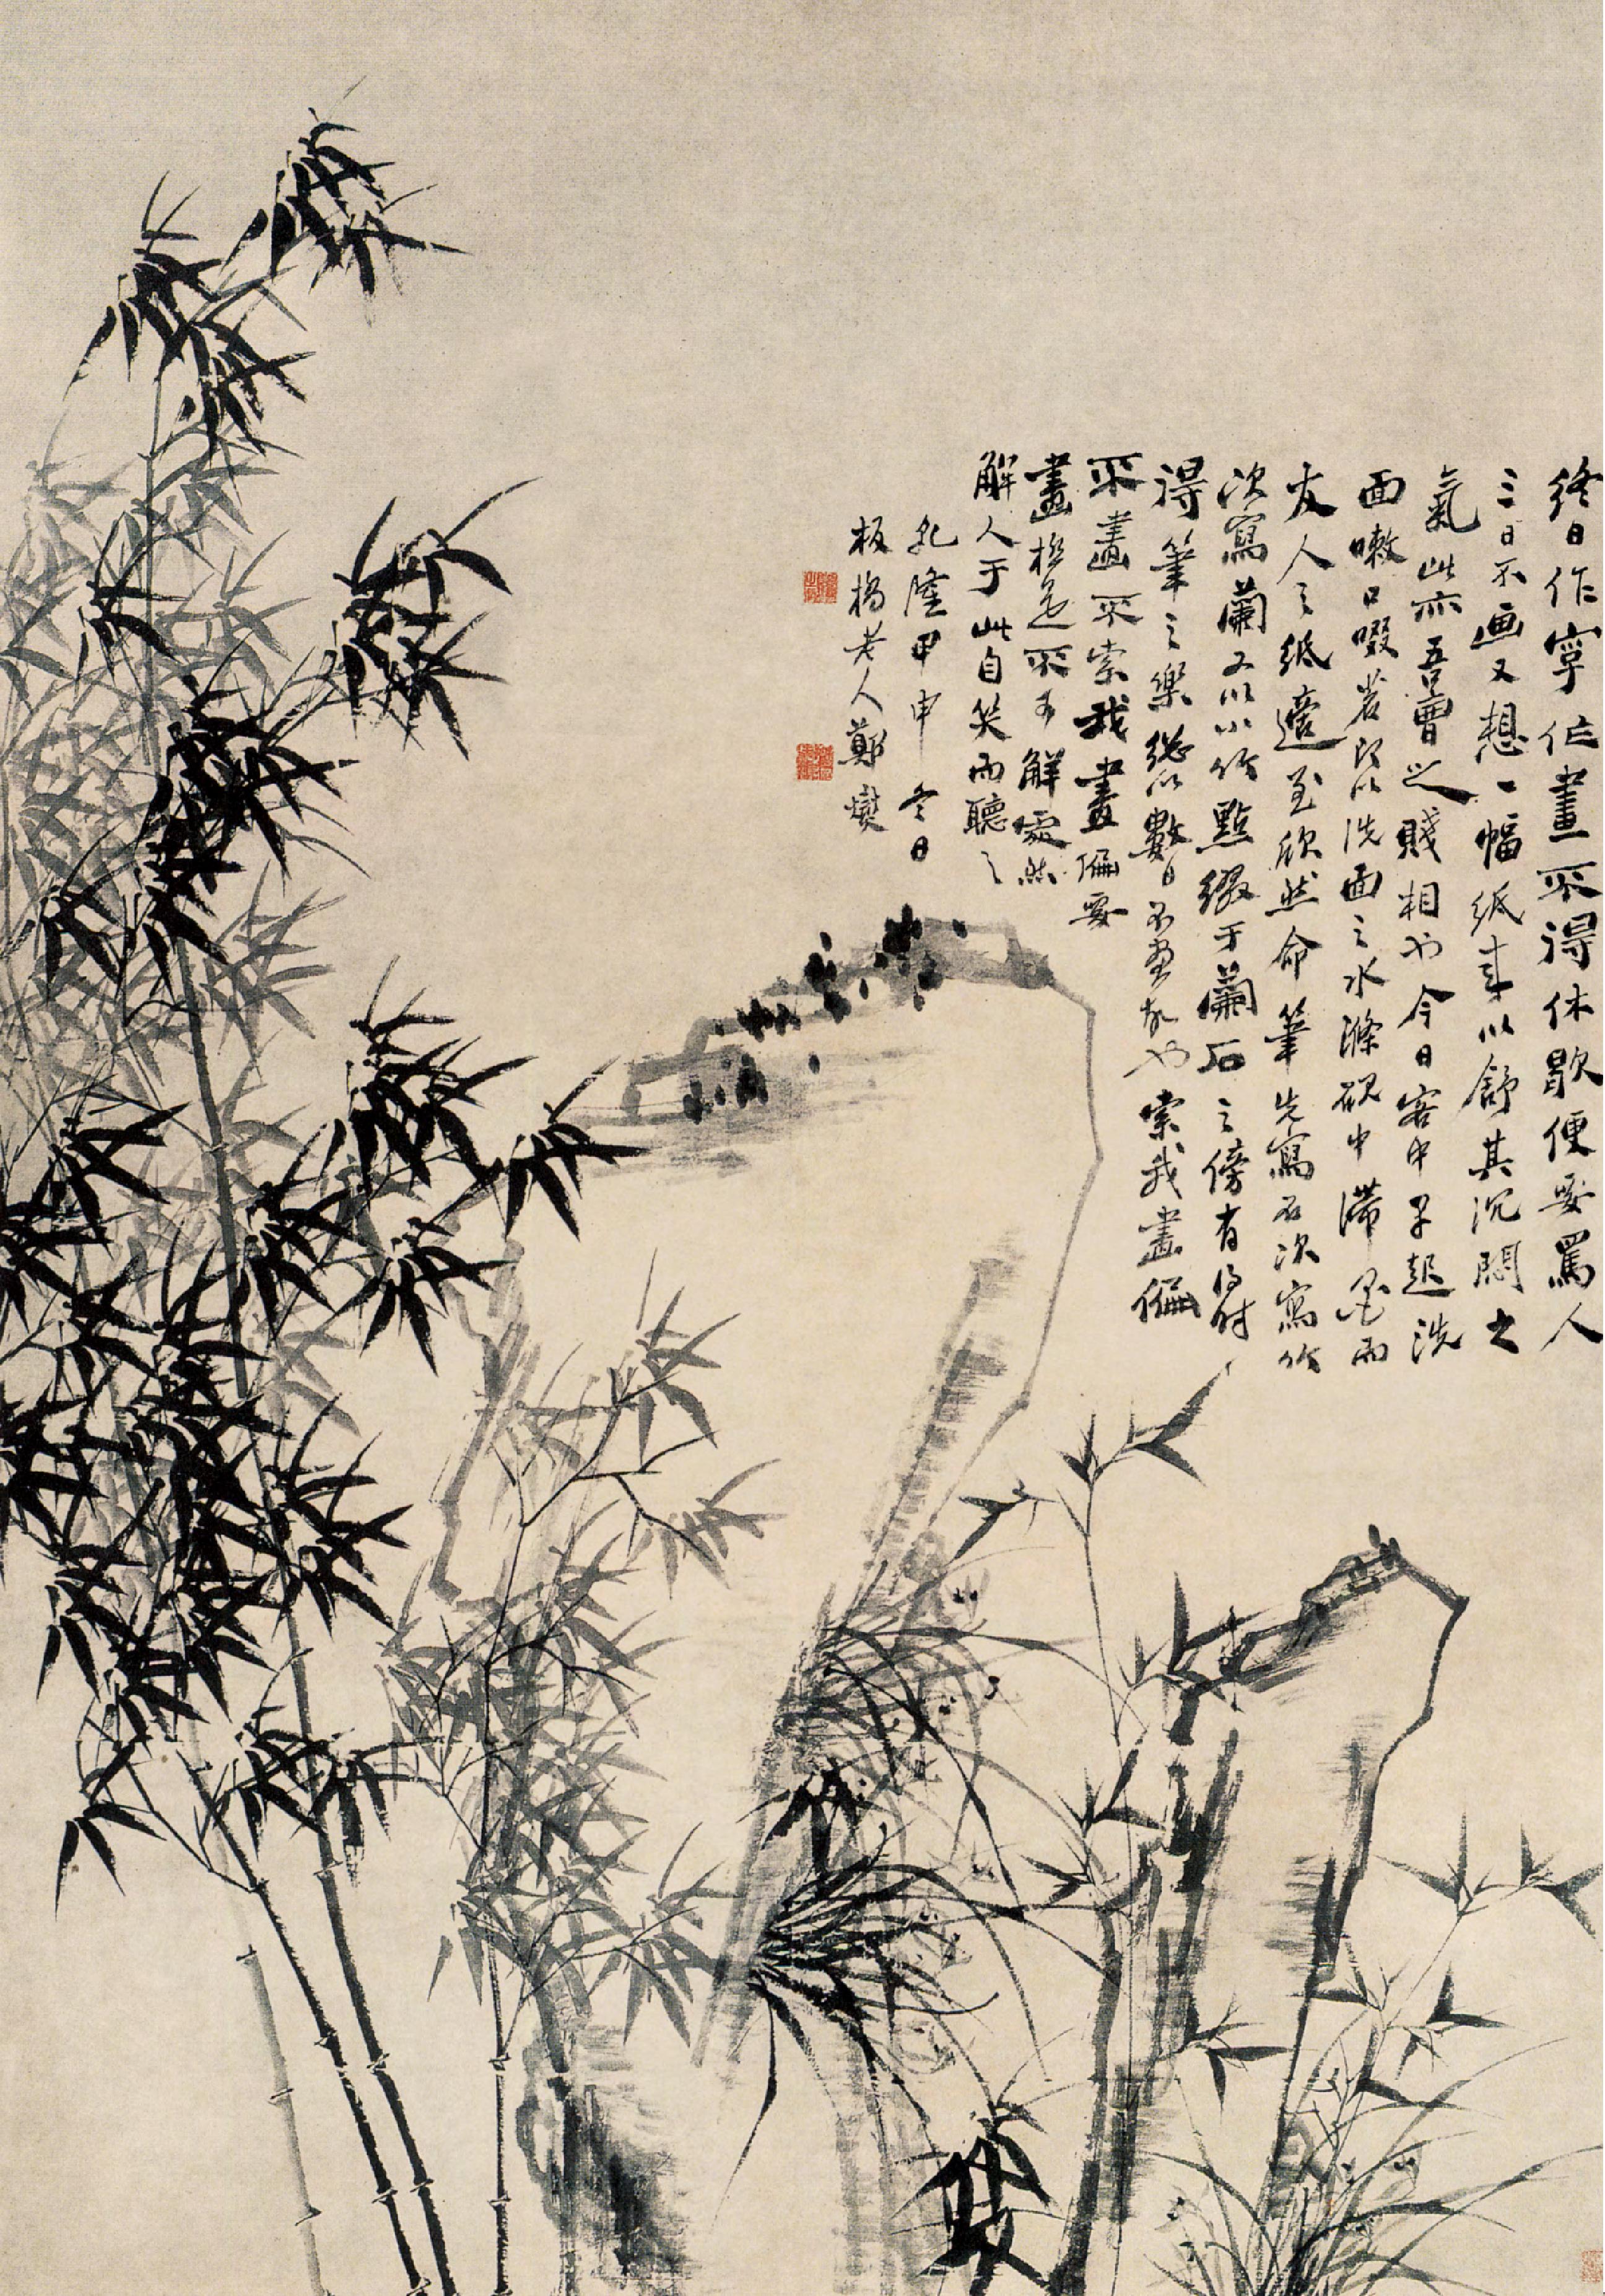 終日作字作畫不得休歇便要罵人
三日不画又想一幅紙来以舒其沉悶之
氣此亦吾曹之賤相也今日客中早起洗
面嗽口啜茗即以洗面之水滌硯中滞墨而
友人之紙適至欣然命筆先寫石次寫竹
次寫蘭又以小竹點綴于蘭石之傍有得時
得筆之樂總以數日不畫故也索我畫偏
不畫不索我畫偏要
畫極是不可解處然
解人于此自笑而聽之
乾隆甲申冬日
板橋老人鄭燮